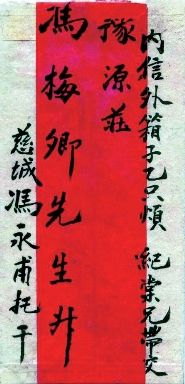 內信外箱子乙只煩 紀棠兄帶交
豫源莊
馮梅卿先生升
慈城馮永甫托 干